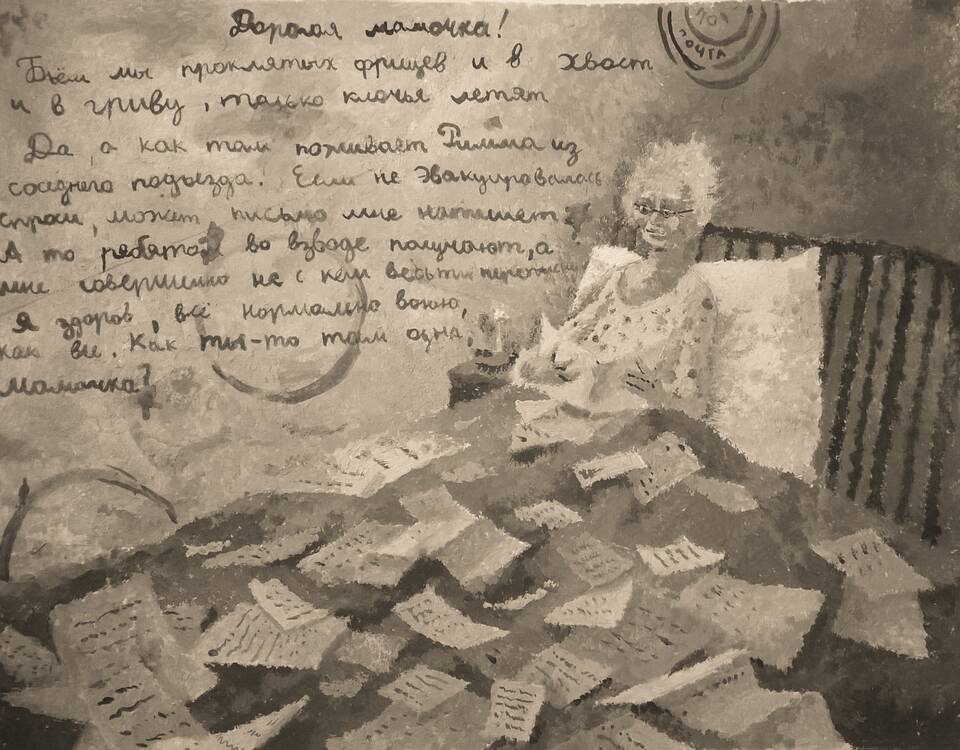 Дорогая мамочка!
ПОЧТА
Бьём мы проклятых фрицев и в хвост
и в гриву, только клочья летят
Да, а как там поживает Римма из
соседнего подъезда? Если не эвакуировалась
спроси, может, письмо мне напишет?
А то ребята во взводе получают, а
мне совершенно не с кем вести переписку
Я здоров, всё нормально воюю,
как все. Как ты-то там одна,
мамочка?